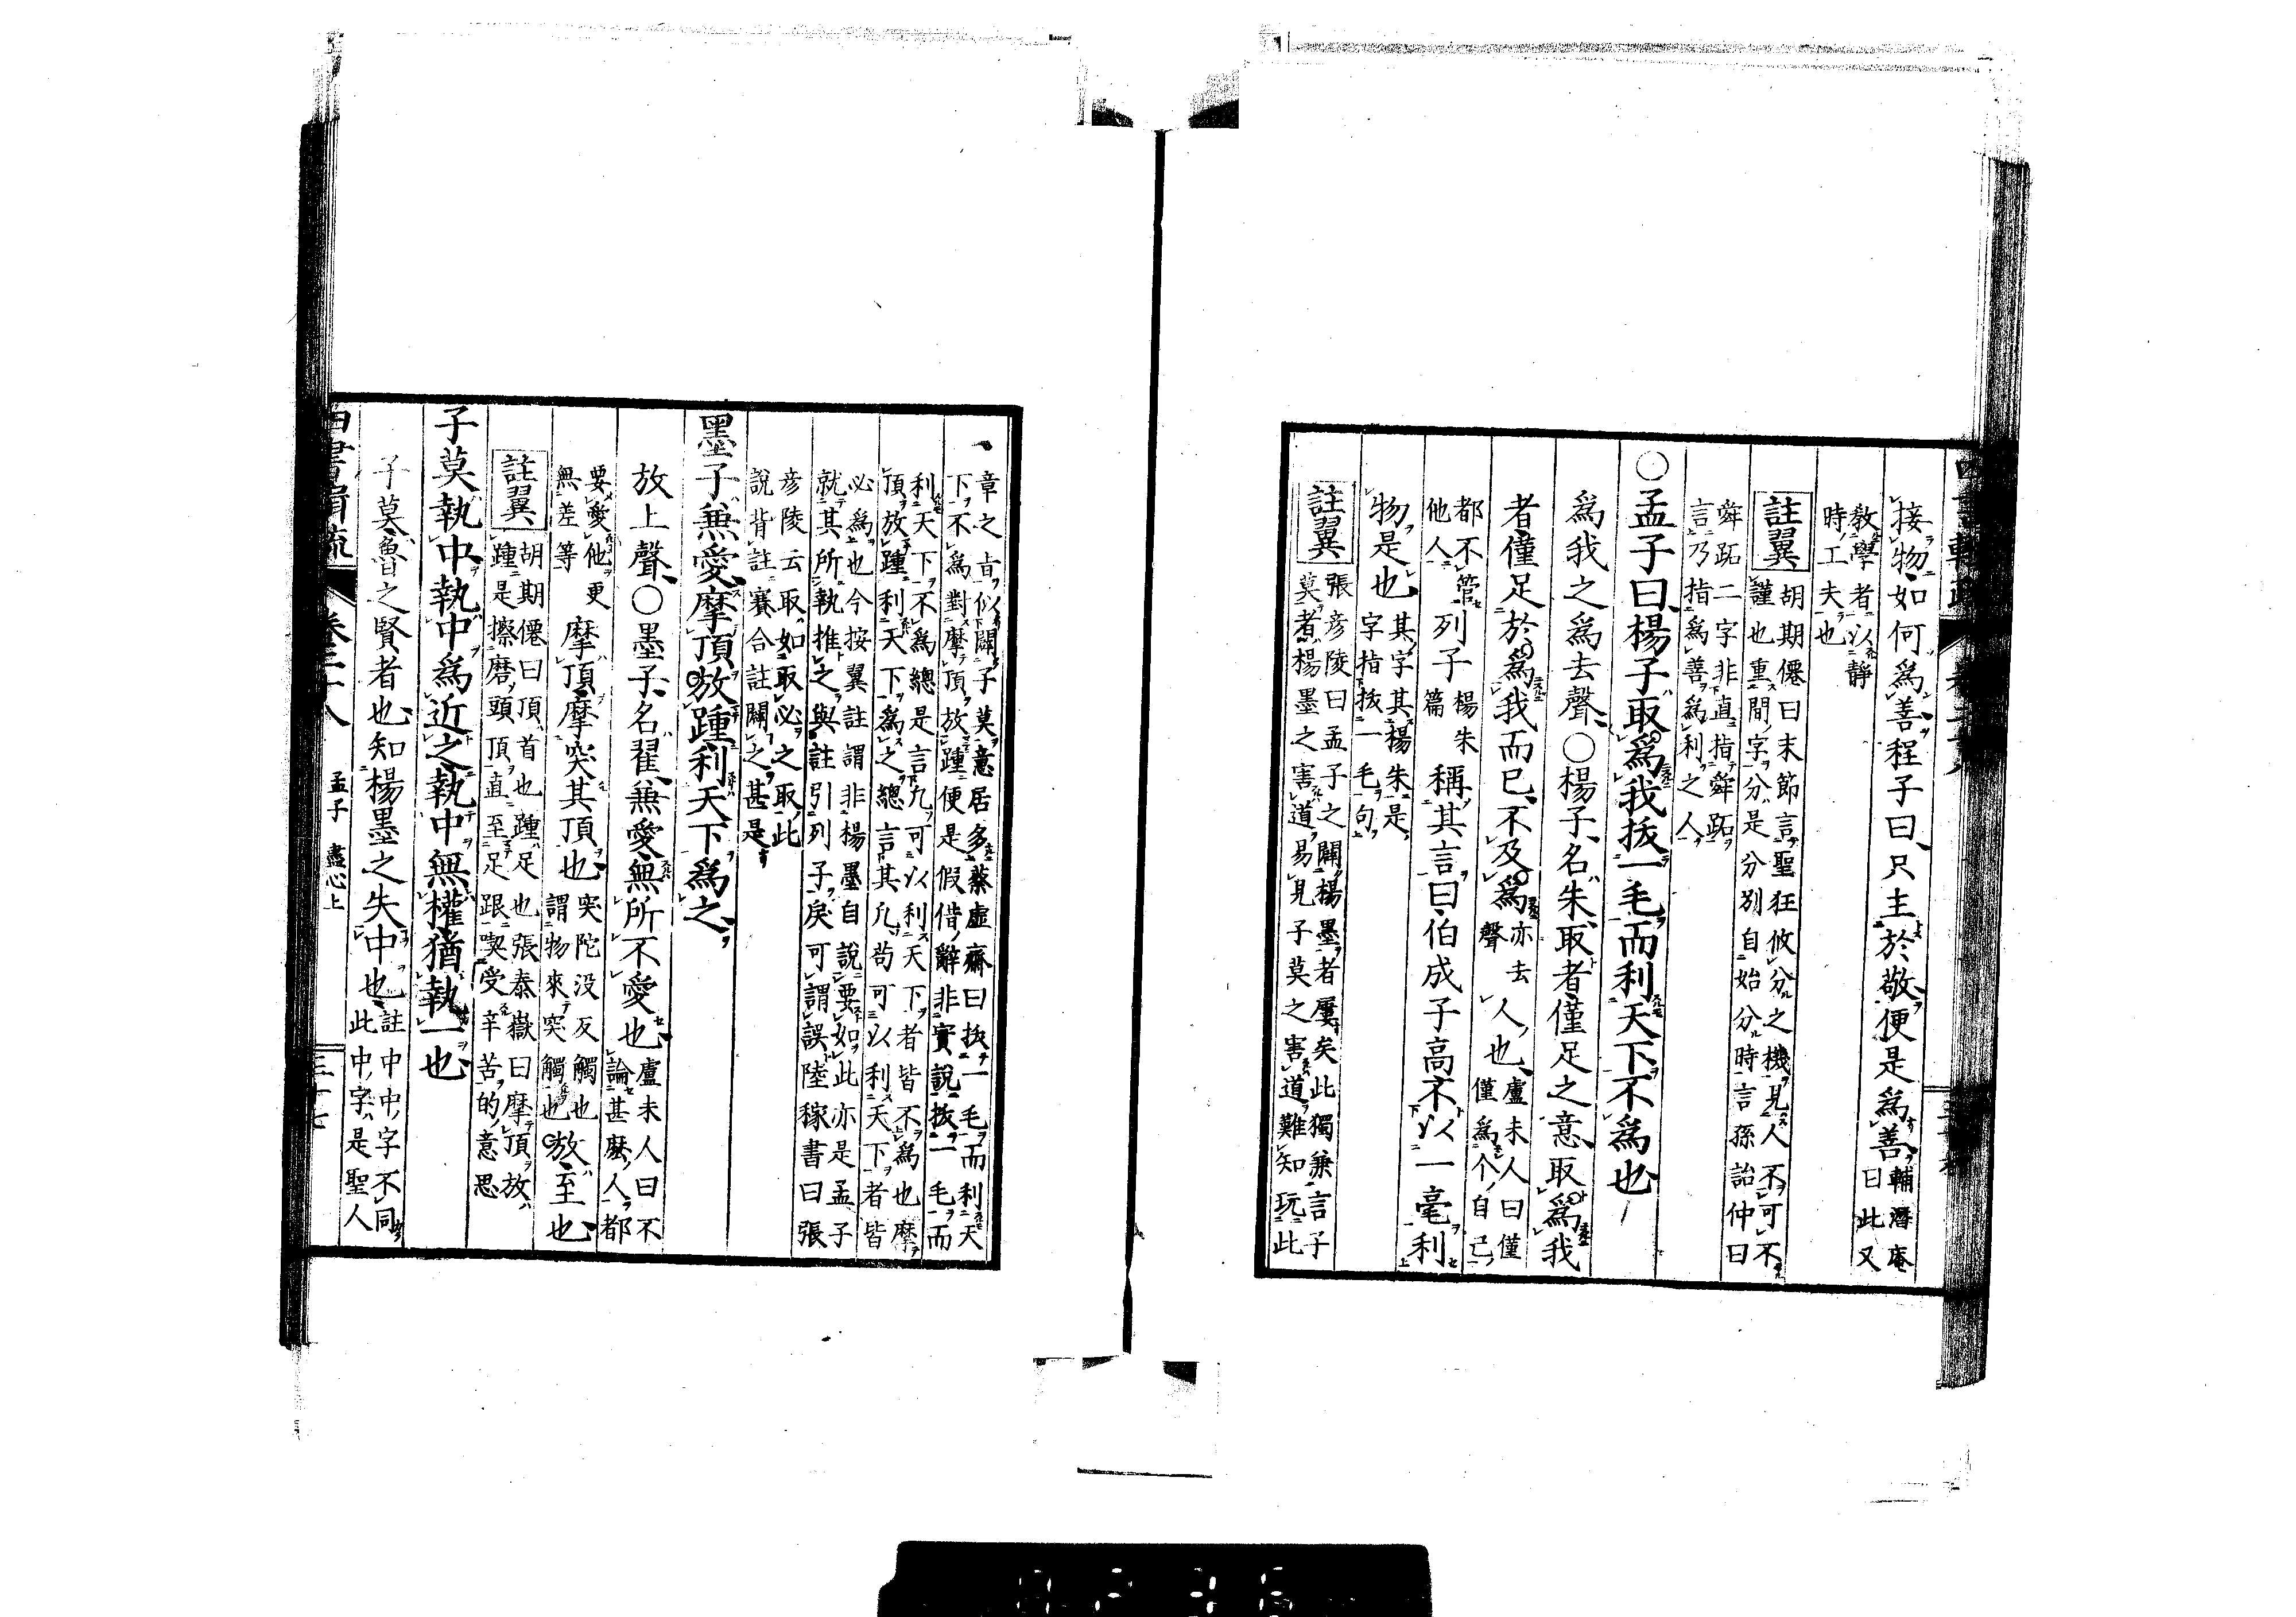 接物如何爲善程子曰只主於敬便是爲善輔潛庵曰此又
敎學者以靜時工夫也
註翼 胡期僊曰末節言聖狂攸分之機見人不可不謹也重間字分是分別自始分時言孫詒仲曰
舜跖二字非直指舜跖言乃指爲善爲利之人
○孟子曰楊子取爲我拔一毛而利天下不爲也
爲我之爲去聲○楊子名朱取者僅足之意取爲我
者僅足於爲我而已不及爲亦去聲人也盧未人曰僅僅爲个自己
都不管他人列子楊朱篇稱其言曰伯成子高不以一毫利
物是也其字其楊朱是字指拔一毛句
註翼 張彦陵曰孟子之闢楊墨者屢矣此獨兼言子莫者楊墨之害道易見子莫之害道難知玩此
章之旨似闢子莫意居多蔡虛齋曰拔一毛而利天下不爲對摩頂放踵便是假借辭非實說拔一毛而
利天下不爲總是言凡可以利天下者皆不爲也摩頂放踵利天下爲之總言其凡苟可以利天下者皆
必爲也今按翼註謂非楊墨自說要如此亦是孟子就其所執推之與註引列子戾可謂誤陸稼書曰張
彦陵云取如取必之取此說背註賽合註闢之甚是
墨子兼愛摩頂放踵利天下爲之
放上聲○墨子名翟兼愛無所不愛也盧未人曰不論甚麽人都
要愛他更無差等摩頂摩突其頂也突陀没反觸也謂物來突觸也放至也
註翼 胡期僊曰頂首也踵足也張泰嶽曰摩頂放踵是擦磨頭頂直至足跟喫受辛苦的意思
子莫執中執中爲近之執中無權猶執一也
子莫魯之賢者也知楊墨之失中也註中中字不同此中字是聖人
孟子 盡心上